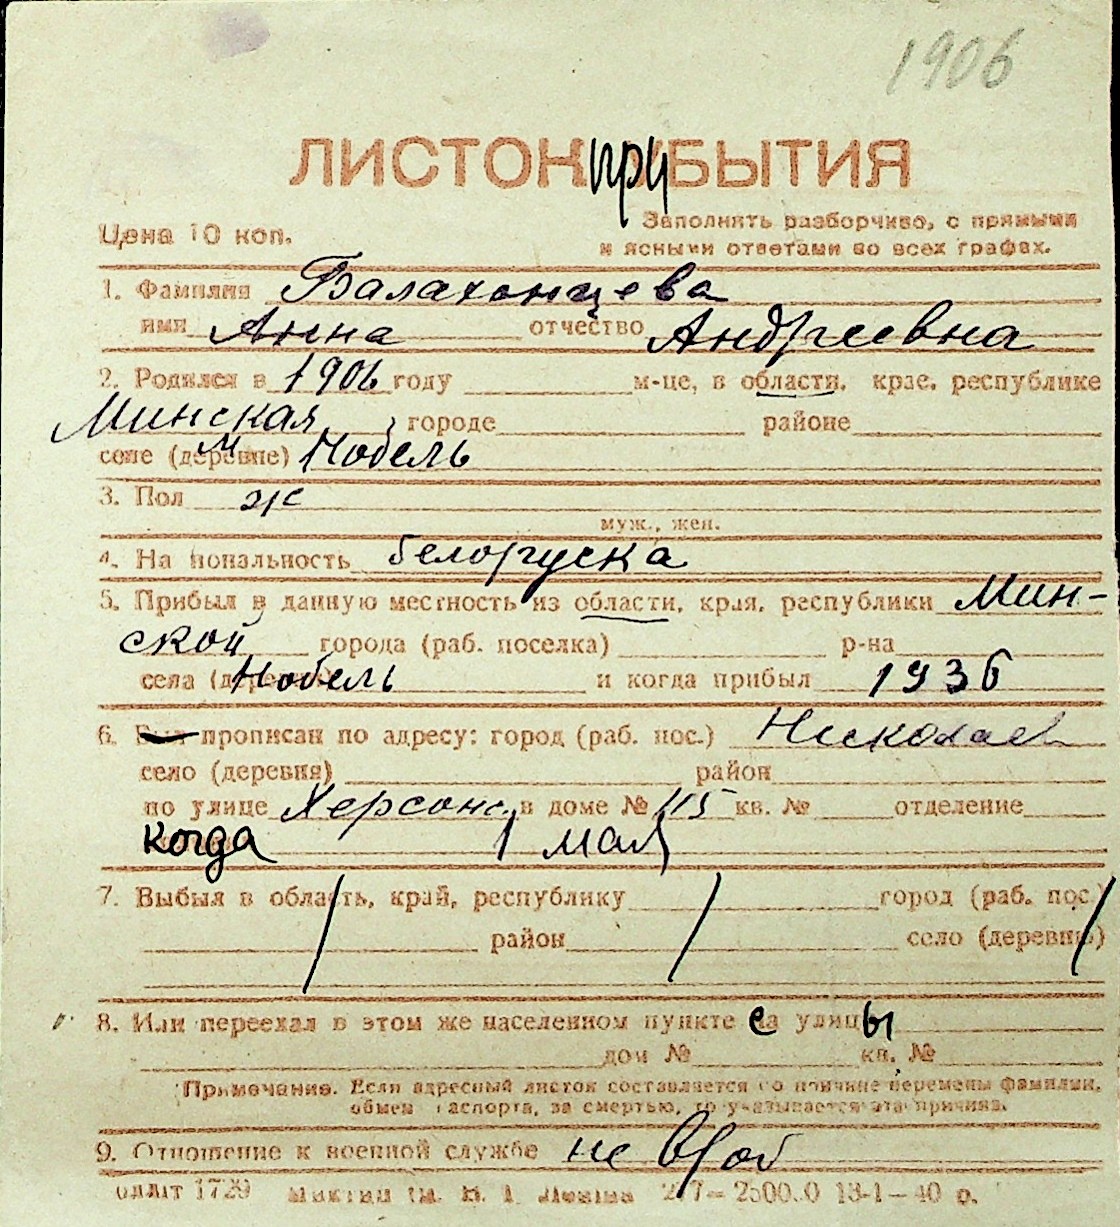 1906
ЛИСТОК прИБЫТИЯ
Цена 10 коп.
Заполнять разборчиво, с прямыми
и ясными ответами во всех графах.
1. Фамилия Балахонцева
имя Анна отчество Андреевна
2. Родился в 1906 году м-це, в области, крае, республике
Минская, городе районе
селе (деревне) м Нобель
3. Пол ж
муж., жен.
4. Национальность белоруска
5. Прибыл в данную местность из области, края, республики Мин-
ской города (раб. поселка) р-на
села (деревни) Нобель и когда прибыл 1936
6. Был прописан по адресу: город (раб. пос.) Николаев
село (деревня) район
по улице Херсонс. в доме № 115 кв. № отделение
когда 1 мая
7. Выбыл в область, край, республику город (раб. пос.)
район село (деревню)
8. Или переехал в этом же населенном пункте с улицы
дом № кв. №
Примечание. Если адресный листок составляется по причине перемены фамилии,
обмен паспорта, за смертью, то указывается эта причина.
9. Отношение к военной службе не
1729 2500 0 13-1-40 р.